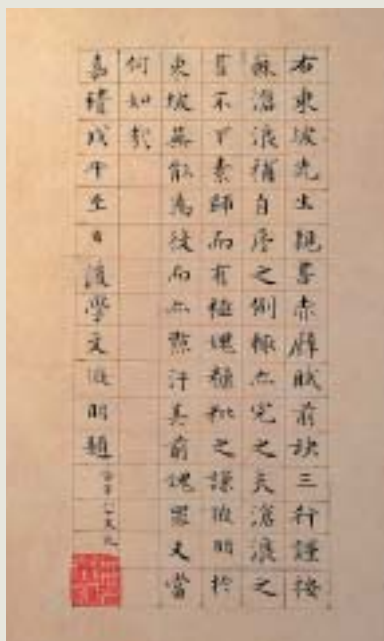 右東坡先生親書赤壁賦前缺三行謹按
蘇滄浪補自序之例輒亦完之夫滄浪之
書不下素師而有極愧糠粃之謙徵明於
東坡無能為役而亦點汙其前愧罪又當
何如哉
嘉靖戊午至日後學文徵明題時年八十又九